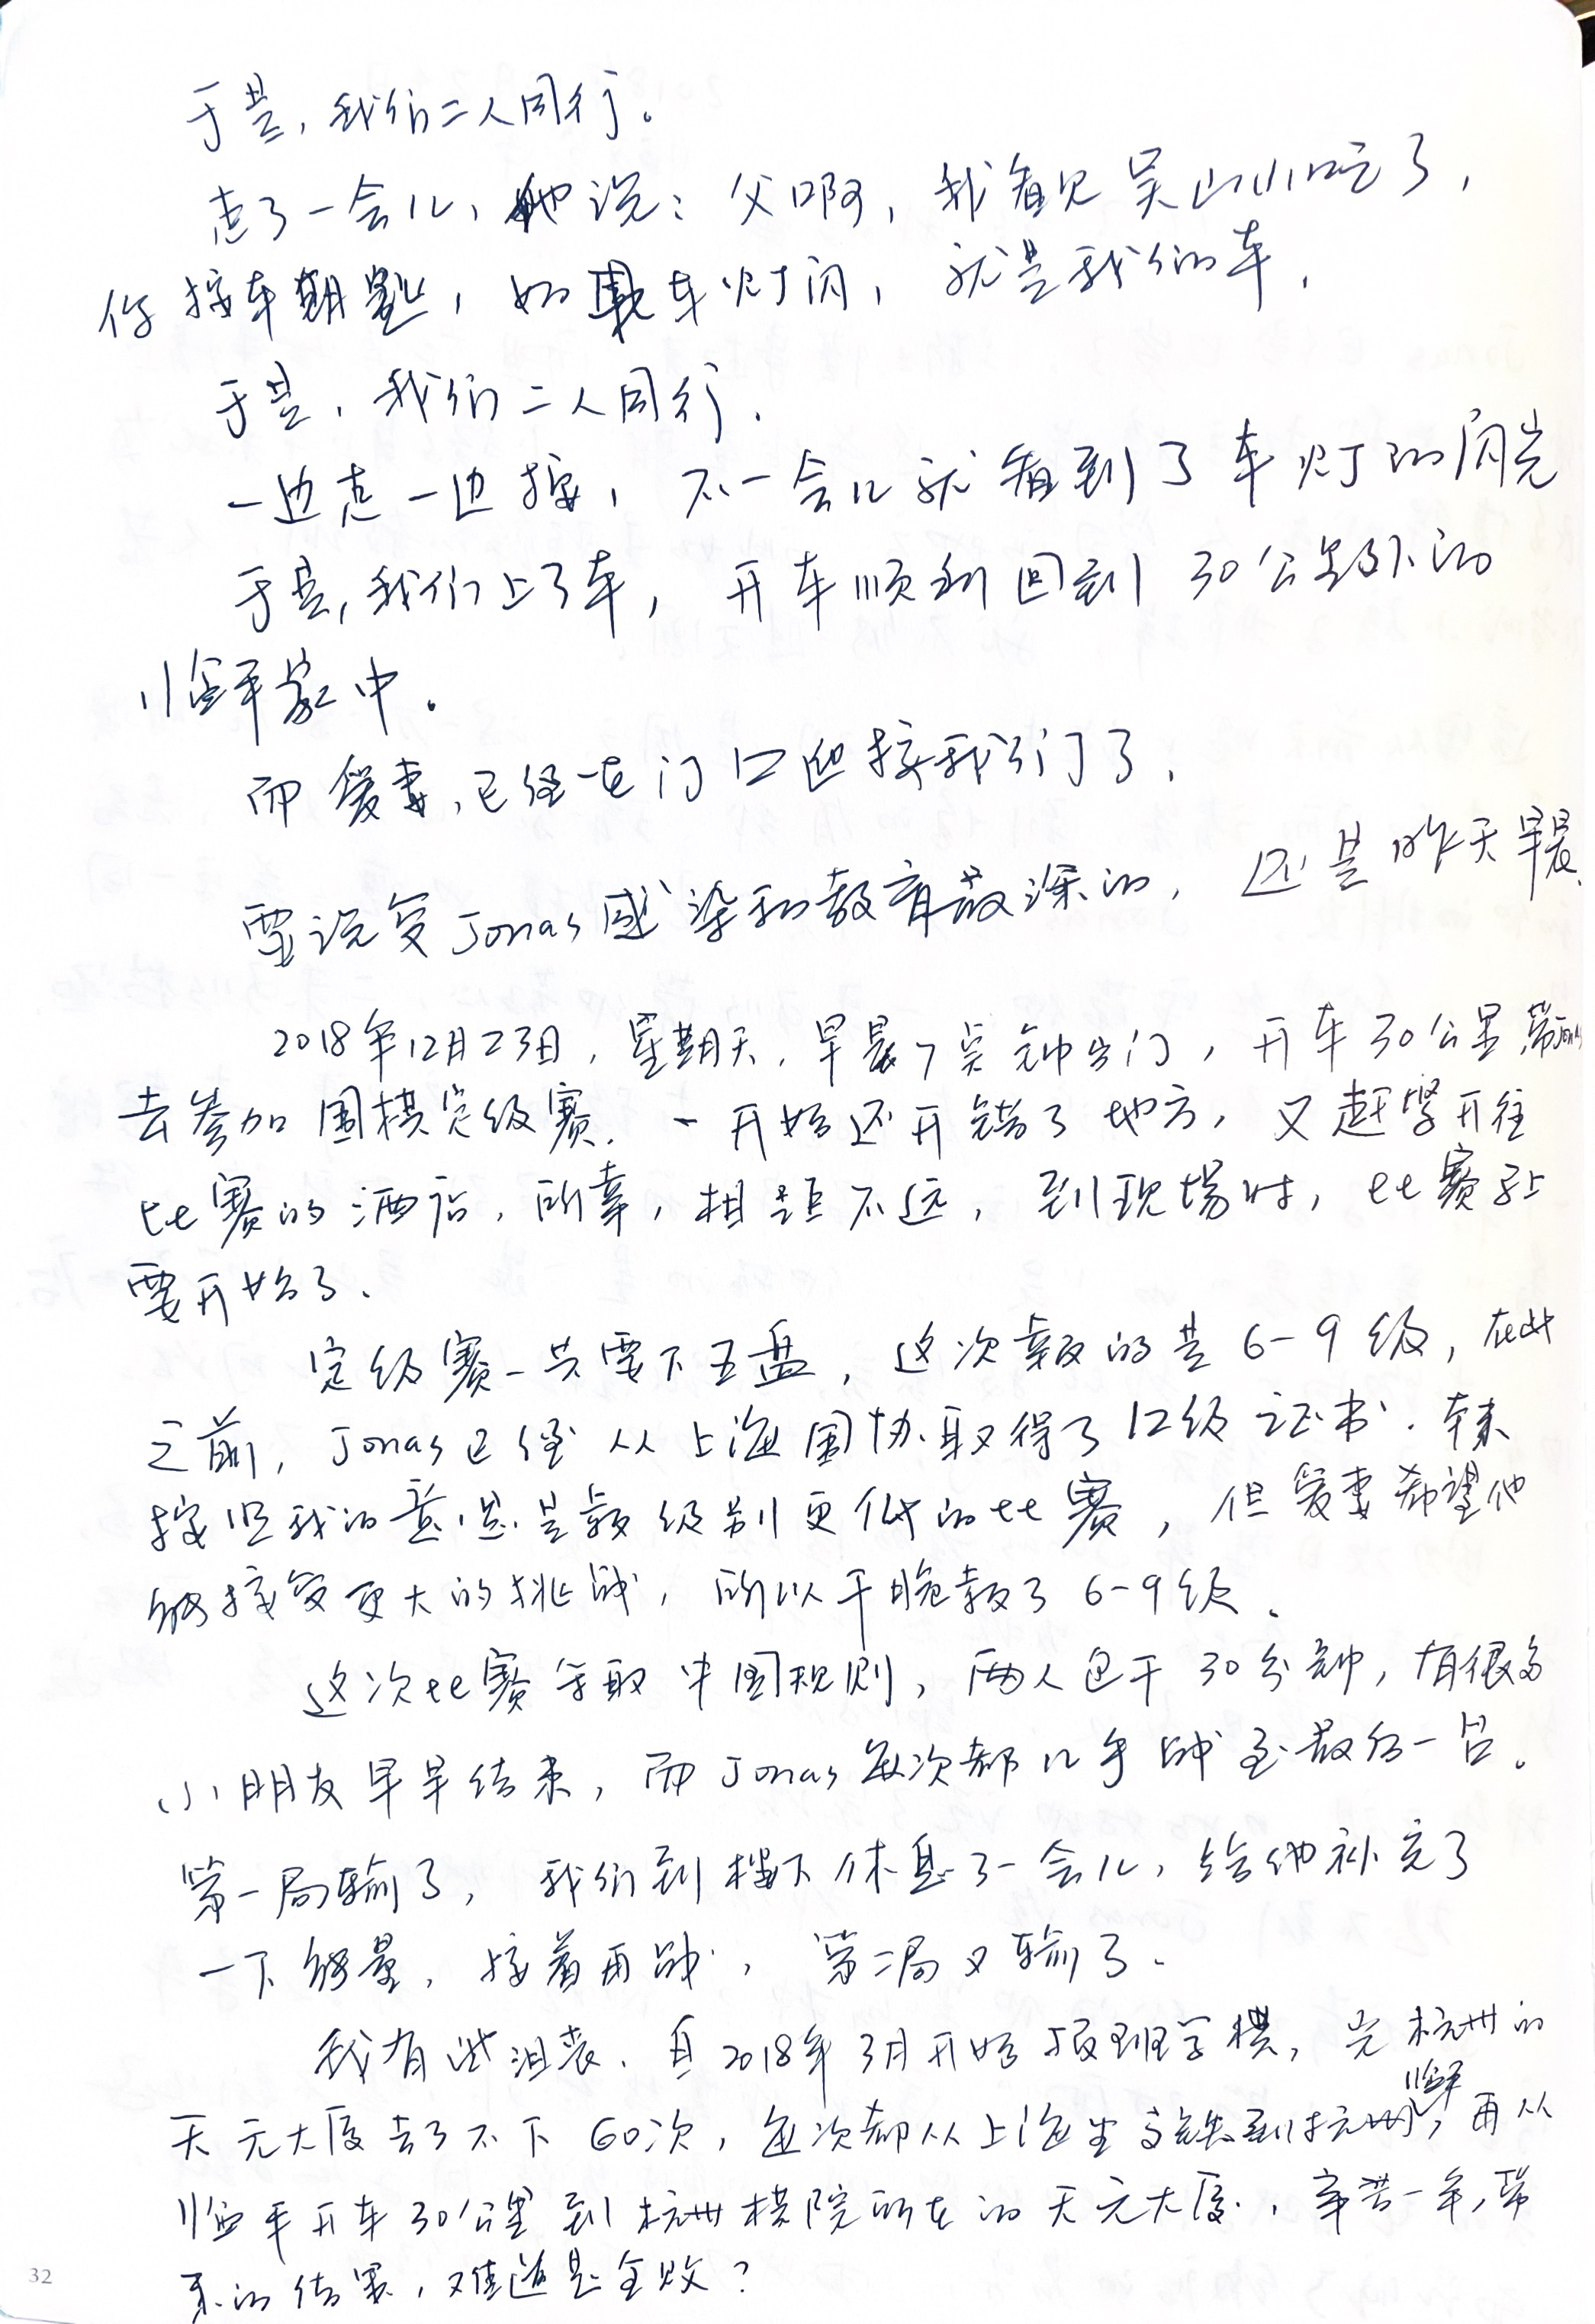 于是，我们二人同行。
走了一会儿，他说：父啊，我看见吴山小吃了，
你按车钥匙，如果车灯闪，就是我们的车，
于是，我们二人同行。
一边走一边按，不一会儿就看到了车灯的闪光
于是，我们上了车，开车顺利回到30公里外的
临平家中。
而爱妻，已经在门口迎接我们了，
要说受Jonas感染和教育最深的，还是昨天早晨，
2018年12月23日，星期天，早晨7点钟出门，开车30公里，带Jonas
去参加围棋定级赛，一开始还开错了地方，又赶紧开往
比赛的酒店，所幸，相距不远，到现场时，比赛马上
要开始了、
定级赛一共要下五盘，这次报的是6-9级，在此
之前，Jonas已经从上海围协取得了12级证书．本来
按照我的意思是报级别更低的比赛，但爱妻希望他
能接受更大的挑战，所以干脆报了6-9级、
这次比赛采取中国规则，两人包干30分钟，有很多
小朋友早早结束，而Jonas每次都几乎战至最后一台。
第一局输了，我们到楼下休息了一会儿，给他补充了
一下能量，接着再战，第二局又输了．
我有些沮丧．自2018年3月开始报班学棋，光杭州的
天元大厦去了不下60次，每次都从上海坐高铁到临平，再从
临平开车30公里到杭州棋院所在的天元大厦．，辛苦一年，带
来的结果，难道是全败？
32